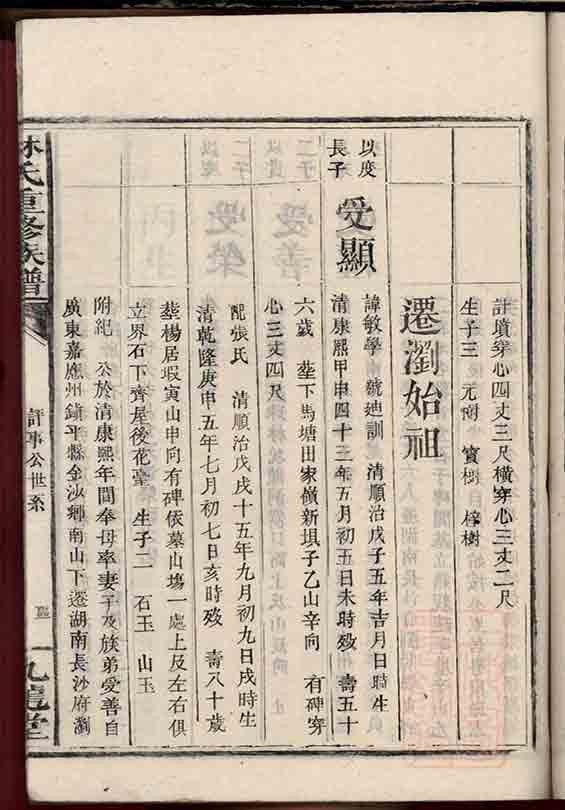 計墳穿心四丈三尺橫穿心三丈二尺
生子三 元樹 寶樹 梓樹
遷瀏始祖
以度
長子
受顯
諱敏學 號廸訓 清順治戊子五年吉月日時生
清康熙甲申四十三年五月初五日未時歿 壽五十
六歲 塟下馬塘田家嶺新塤子乙山辛向 有碑穿
心三丈四尺
配張氏 清順治戊戌十五年九月初九日戌時生
清乾隆庚申五年七月初七日亥時歿 壽八十歲
塟楊居塅寅山申向有碑依墓山塲一處上及左右俱
立界石下齊屋後花臺 生子二 石玉 山玉
附紀 公於清康熙年間奉母率妻子及族弟受善自
廣東嘉應州鎮平縣金沙鄉南山下遷湖南長沙府瀏
林氏重修族譜
評事公世系
九龍堂